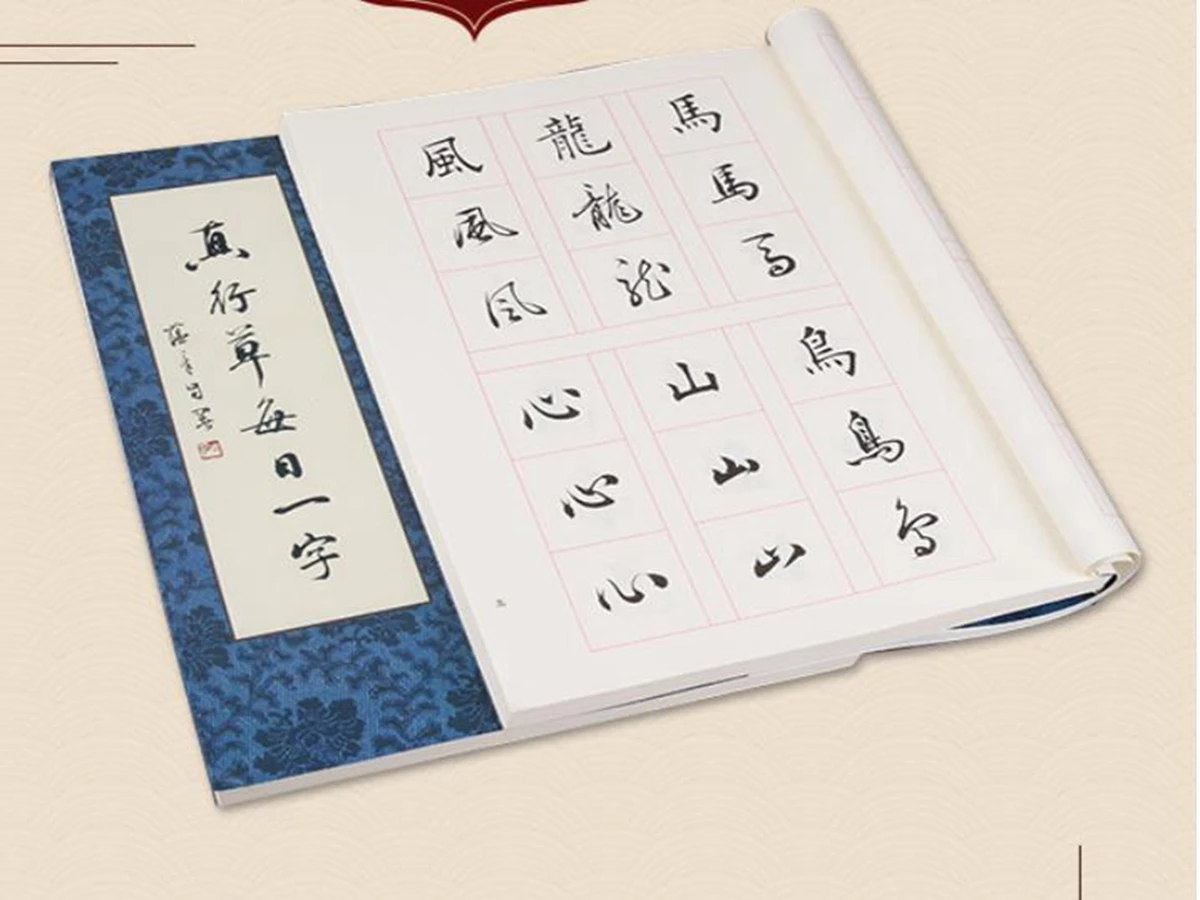 真行草每日一字
馬馬馬
龍龍龍
風風風
鳥鳥鳥
山山山
心心心
五